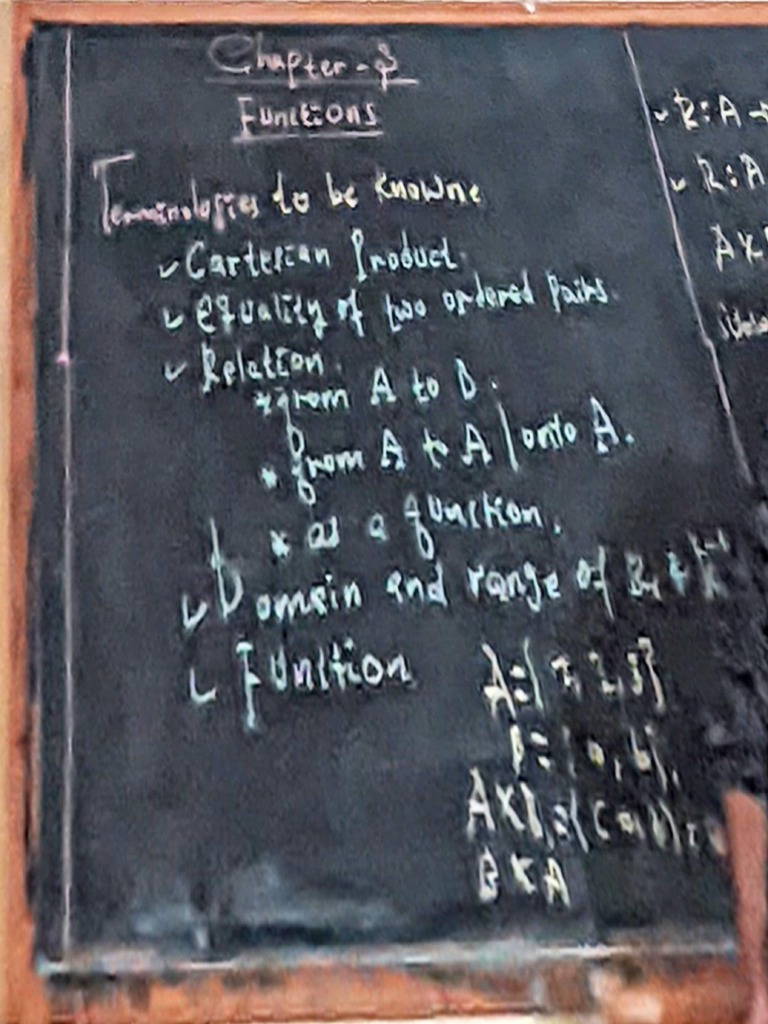 Chapter-3
Functions
Terminologies to be Knowne
✓ Cartesian Product.
✓ Equality of two ordered Pairs.
✓ Relation.
* from A to B.
* from A to A / onto A.
* as a function.
✓ Domain and range of R &
✓ Function
A={1,2,3}
B={a,b}.
AXB={(
BXA
✓ R:A
✓ R:A
AX